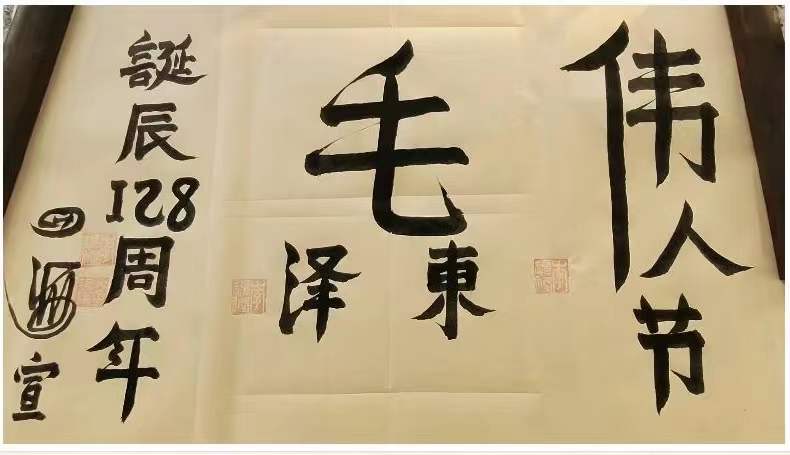 伟人节
毛
泽東
誕辰128周年
宣